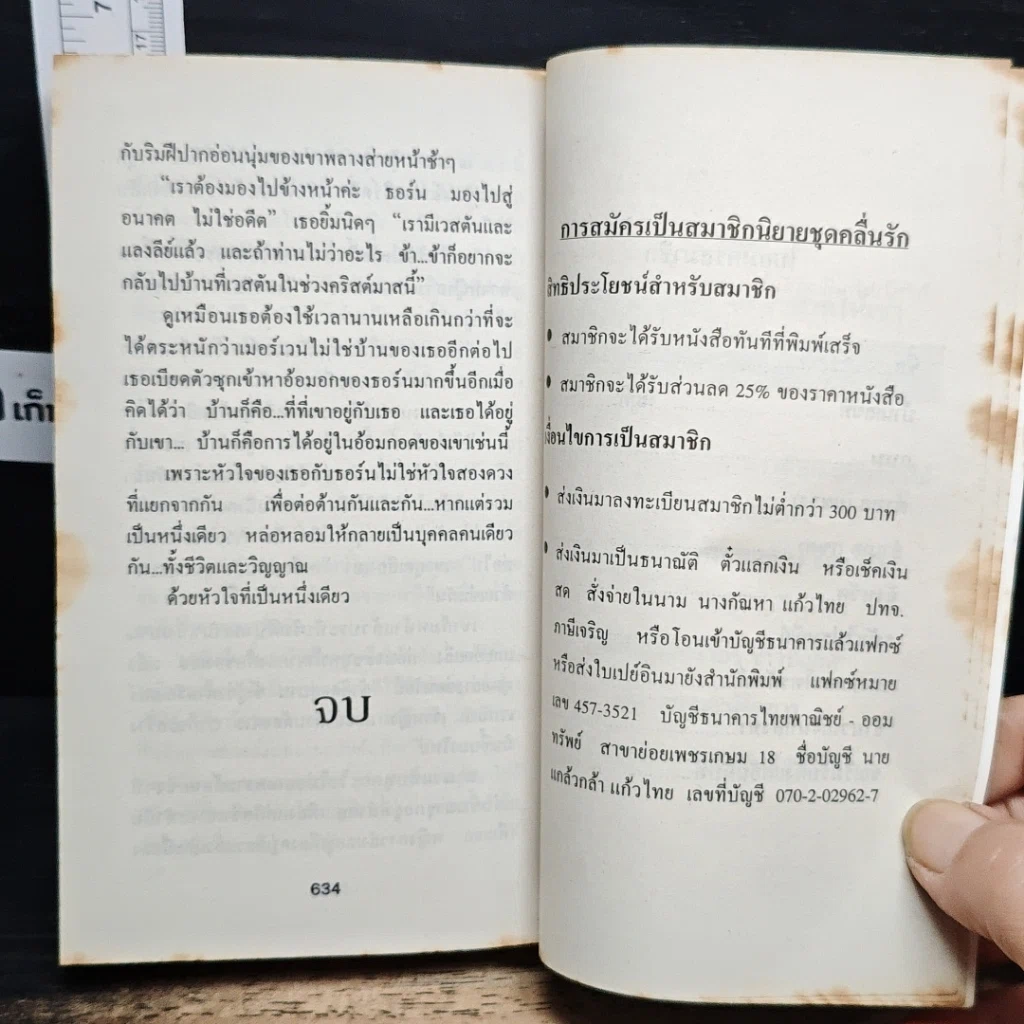 7
17
เก็
กับริมฝีปากอ่อนนุ่มของเขาพลางส่ายหน้าช้าๆ
“เราต้องมองไปข้างหน้าค่ะ ธอร์น มองไปสู่
อนาคต ไม่ใช่อดีต” เธอยิ้มนิดๆ “เรามีเวสตันและ
แลงลีย์แล้ว และถ้าท่านไม่ว่าอะไร ข้า...ข้าก็อยากจะ
กลับไปบ้านที่เวสตันในช่วงคริสต์มาสนี้”
ดูเหมือนเธอต้องใช้เวลานานเหลือเกินกว่าที่จะ
ได้ตระหนักว่าเมอร์เวนไม่ใช่บ้านของเธออีกต่อไป
เธอเบียดตัวซุกเข้าหาอ้อมอกของธอร์นมากขึ้นอีกเมื่อ
คิดได้ว่า บ้านก็คือ...ที่ที่เขาอยู่กับเธอ และเธอได้อยู่
กับเขา... บ้านก็คือการได้อยู่ในอ้อมกอดของเขาเช่นนี้
เพราะหัวใจของเธอกับธอร์นไม่ใช่หัวใจสองดวง
ที่แยกจากกัน เพื่อต่อต้านกันและกัน...หากแต่รวม
เป็นหนึ่งเดียว หล่อหลอมให้กลายเป็นบุคคลคนเดียว
กัน...ทั้งชีวิตและวิญญาณ
ด้วยหัวใจที่เป็นหนึ่งเดียว
จบ
634
การสมัครเป็นสมาชิกนิยายชุดคลื่นรัก
สิทธิประโยชน์สำหรับสมาชิก
• สมาชิกจะได้รับหนังสือทันทีที่พิมพ์เสร็จ
• สมาชิกจะได้รับส่วนลด 25% ของราคาหนังสือ
เงื่อนไขการเป็นสมาชิก
• ส่งเงินมาลงทะเบียนสมาชิกไม่ต่ำกว่า 300 บาท
• ส่งเงินมาเป็นธนาณัติ ตั๋วแลกเงิน หรือเช็คเงิน
สด สั่งจ่ายในนาม นางกัณหา แก้วไทย ปทจ.
ภาษีเจริญ หรือโอนเข้าบัญชีธนาคารแล้วแฟกซ์
หรือส่งใบเปย์อินมายังสำนักพิมพ์ แฟกซ์หมาย
เลข 457-3521 บัญชีธนาคารไทยพาณิชย์ - ออม
ทรัพย์ สาขาย่อยเพชรเกษม 18 ชื่อบัญชี นาย
แกล้วกล้า แก้วไทย เลขที่บัญชี 070-2-02962-7